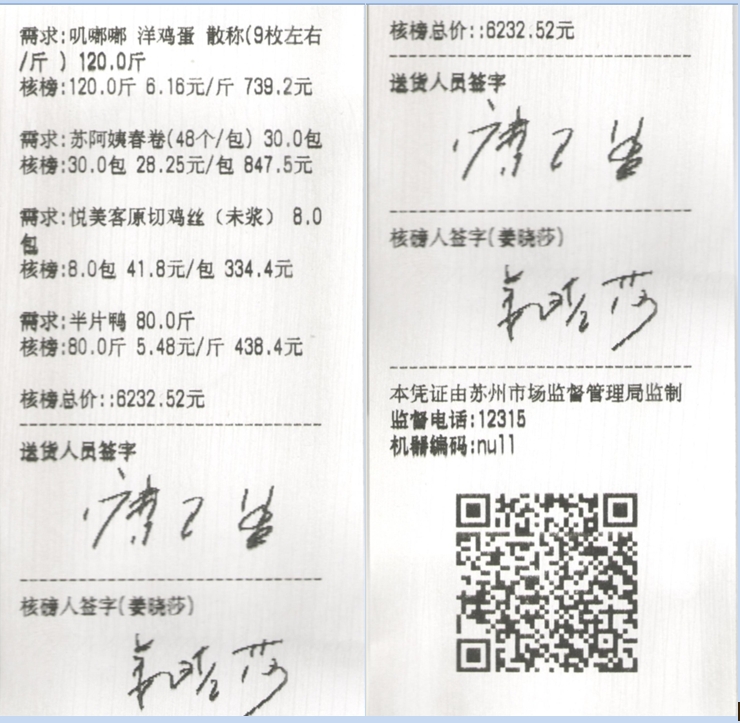 需求:叽嘟嘟 洋鸡蛋 散称(9枚左右
/斤 ) 120.0斤
核榜:120.0斤 6.16元/斤 739.2元
需求:苏阿姨春卷(48个/包) 30.0包
核榜:30.0包 28.25元/包 847.5元
需求:悦美客原切鸡丝（未浆） 8.0
包
核榜:8.0包 41.8元/包 334.4元
需求:半片鸭 80.0斤
核榜:80.0斤 5.48元/斤 438.4元
核榜总价::6232.52元
送货人员签字
核磅人签字(姜晓莎)
姜晓莎
核榜总价::6232.52元
送货人员签字
核磅人签字(姜晓莎)
姜晓莎
本凭证由苏州市场监督管理局监制
监督电话:12315
机器编码:null